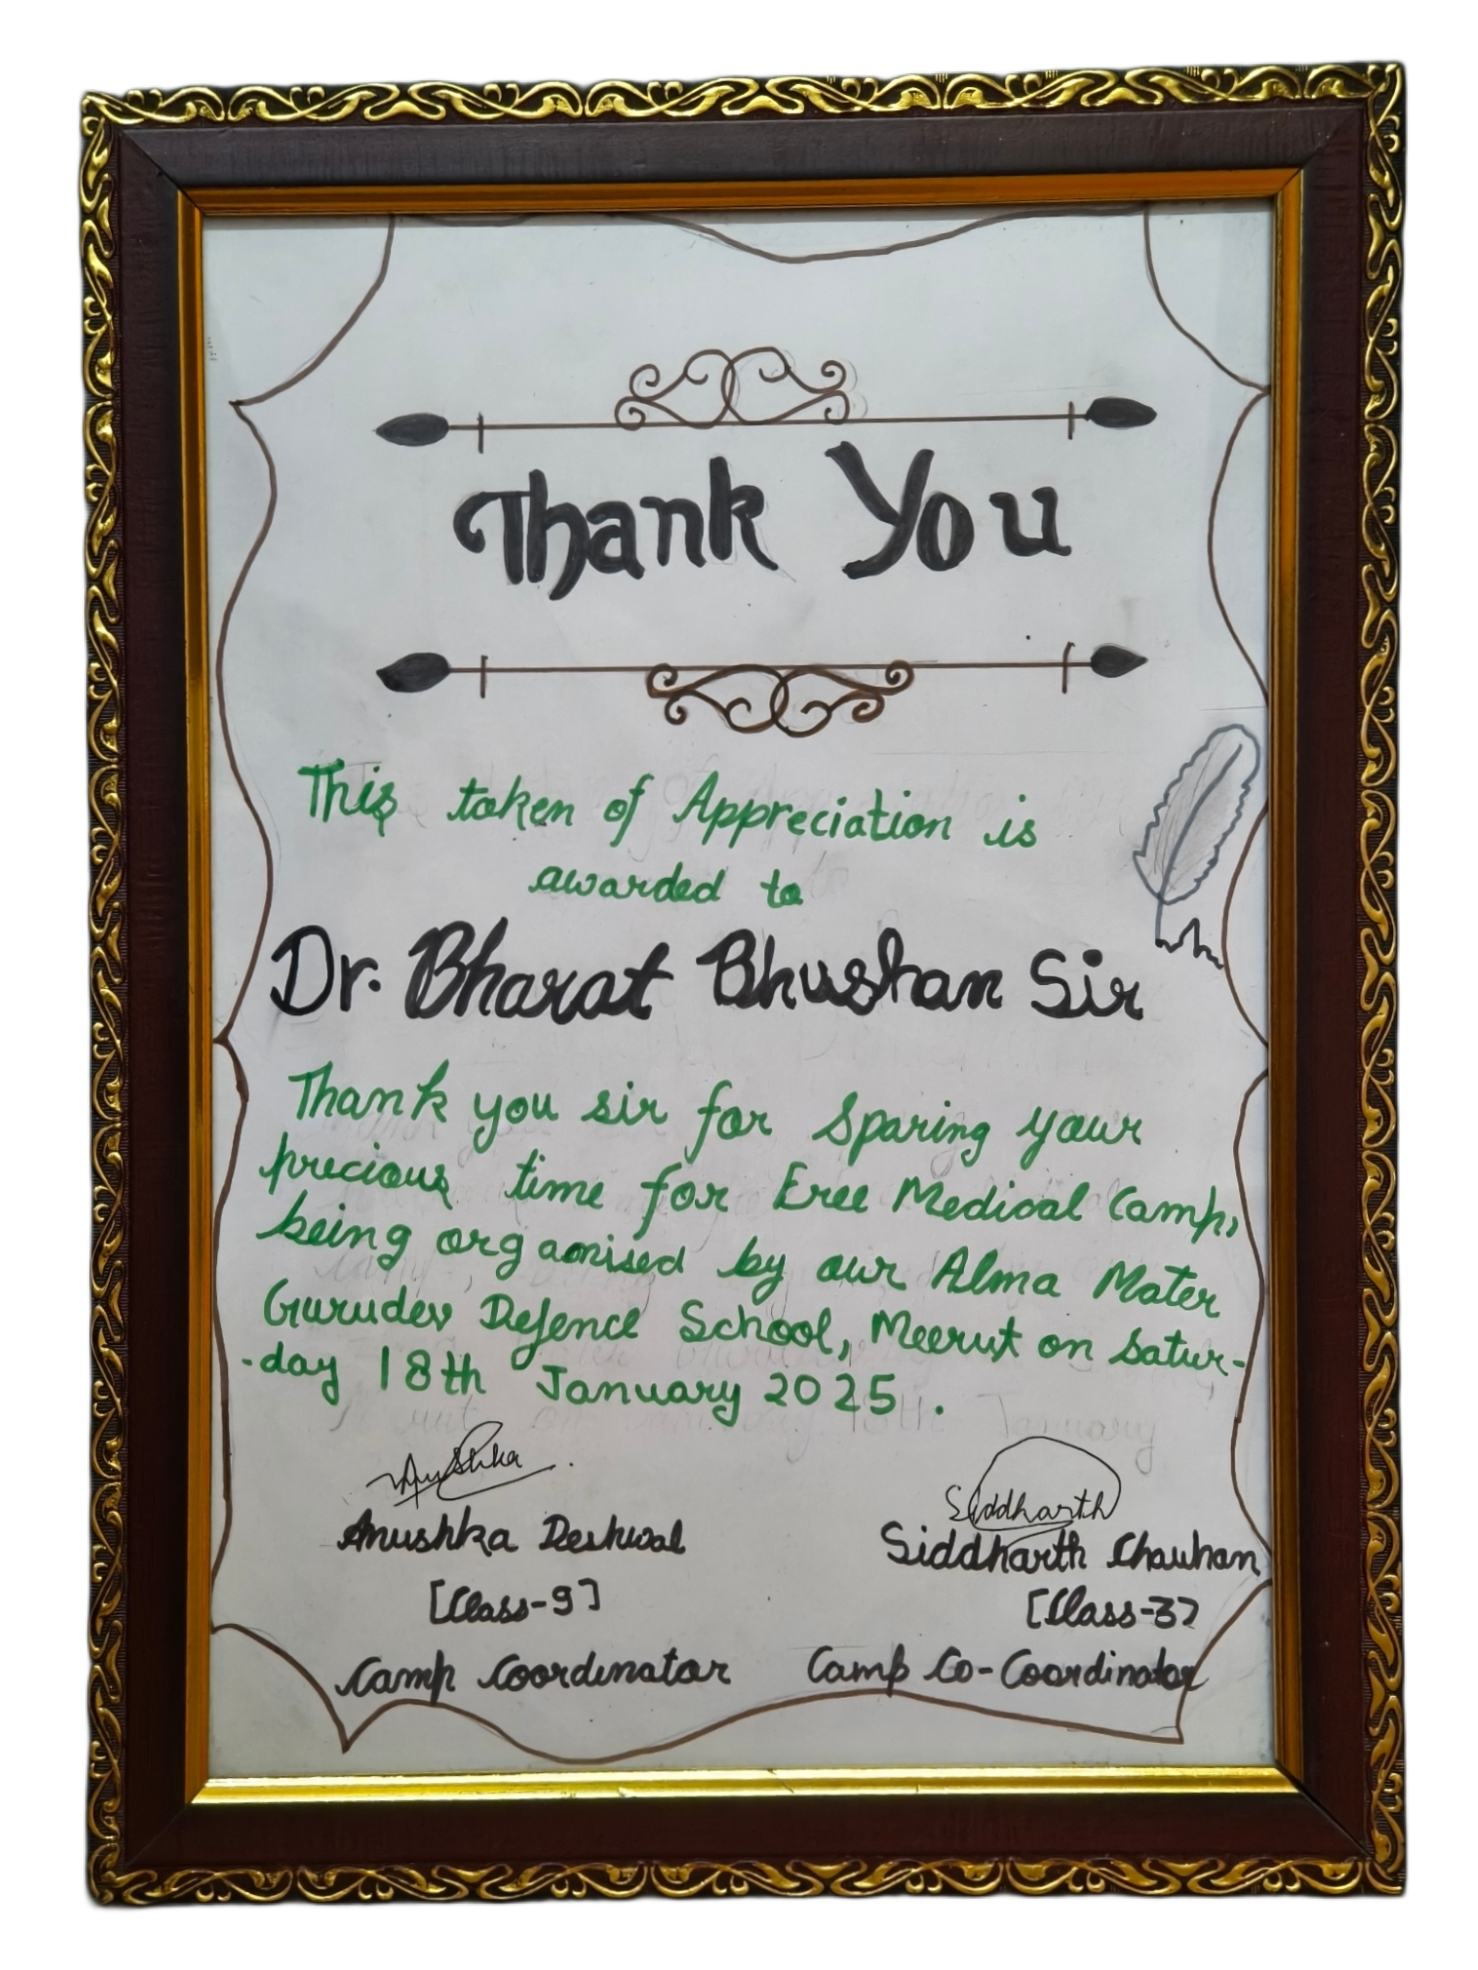 Thank You
This taken of Appreciation is
awarded to
Dr. Bharat Bhushan Sir
Thank you sir for sparing your
precious time for Free Medical Camp,
being organised by our Alma Mater
Gurudev Defence School, Meerut on Satur-
-day 18th January 2025.
Anushka
Siddharth
Anushka Deshwal
Siddharth Chauhan
[Class-9]
[Class-3]
Camp Coordinator
Camp Co-Coordinator